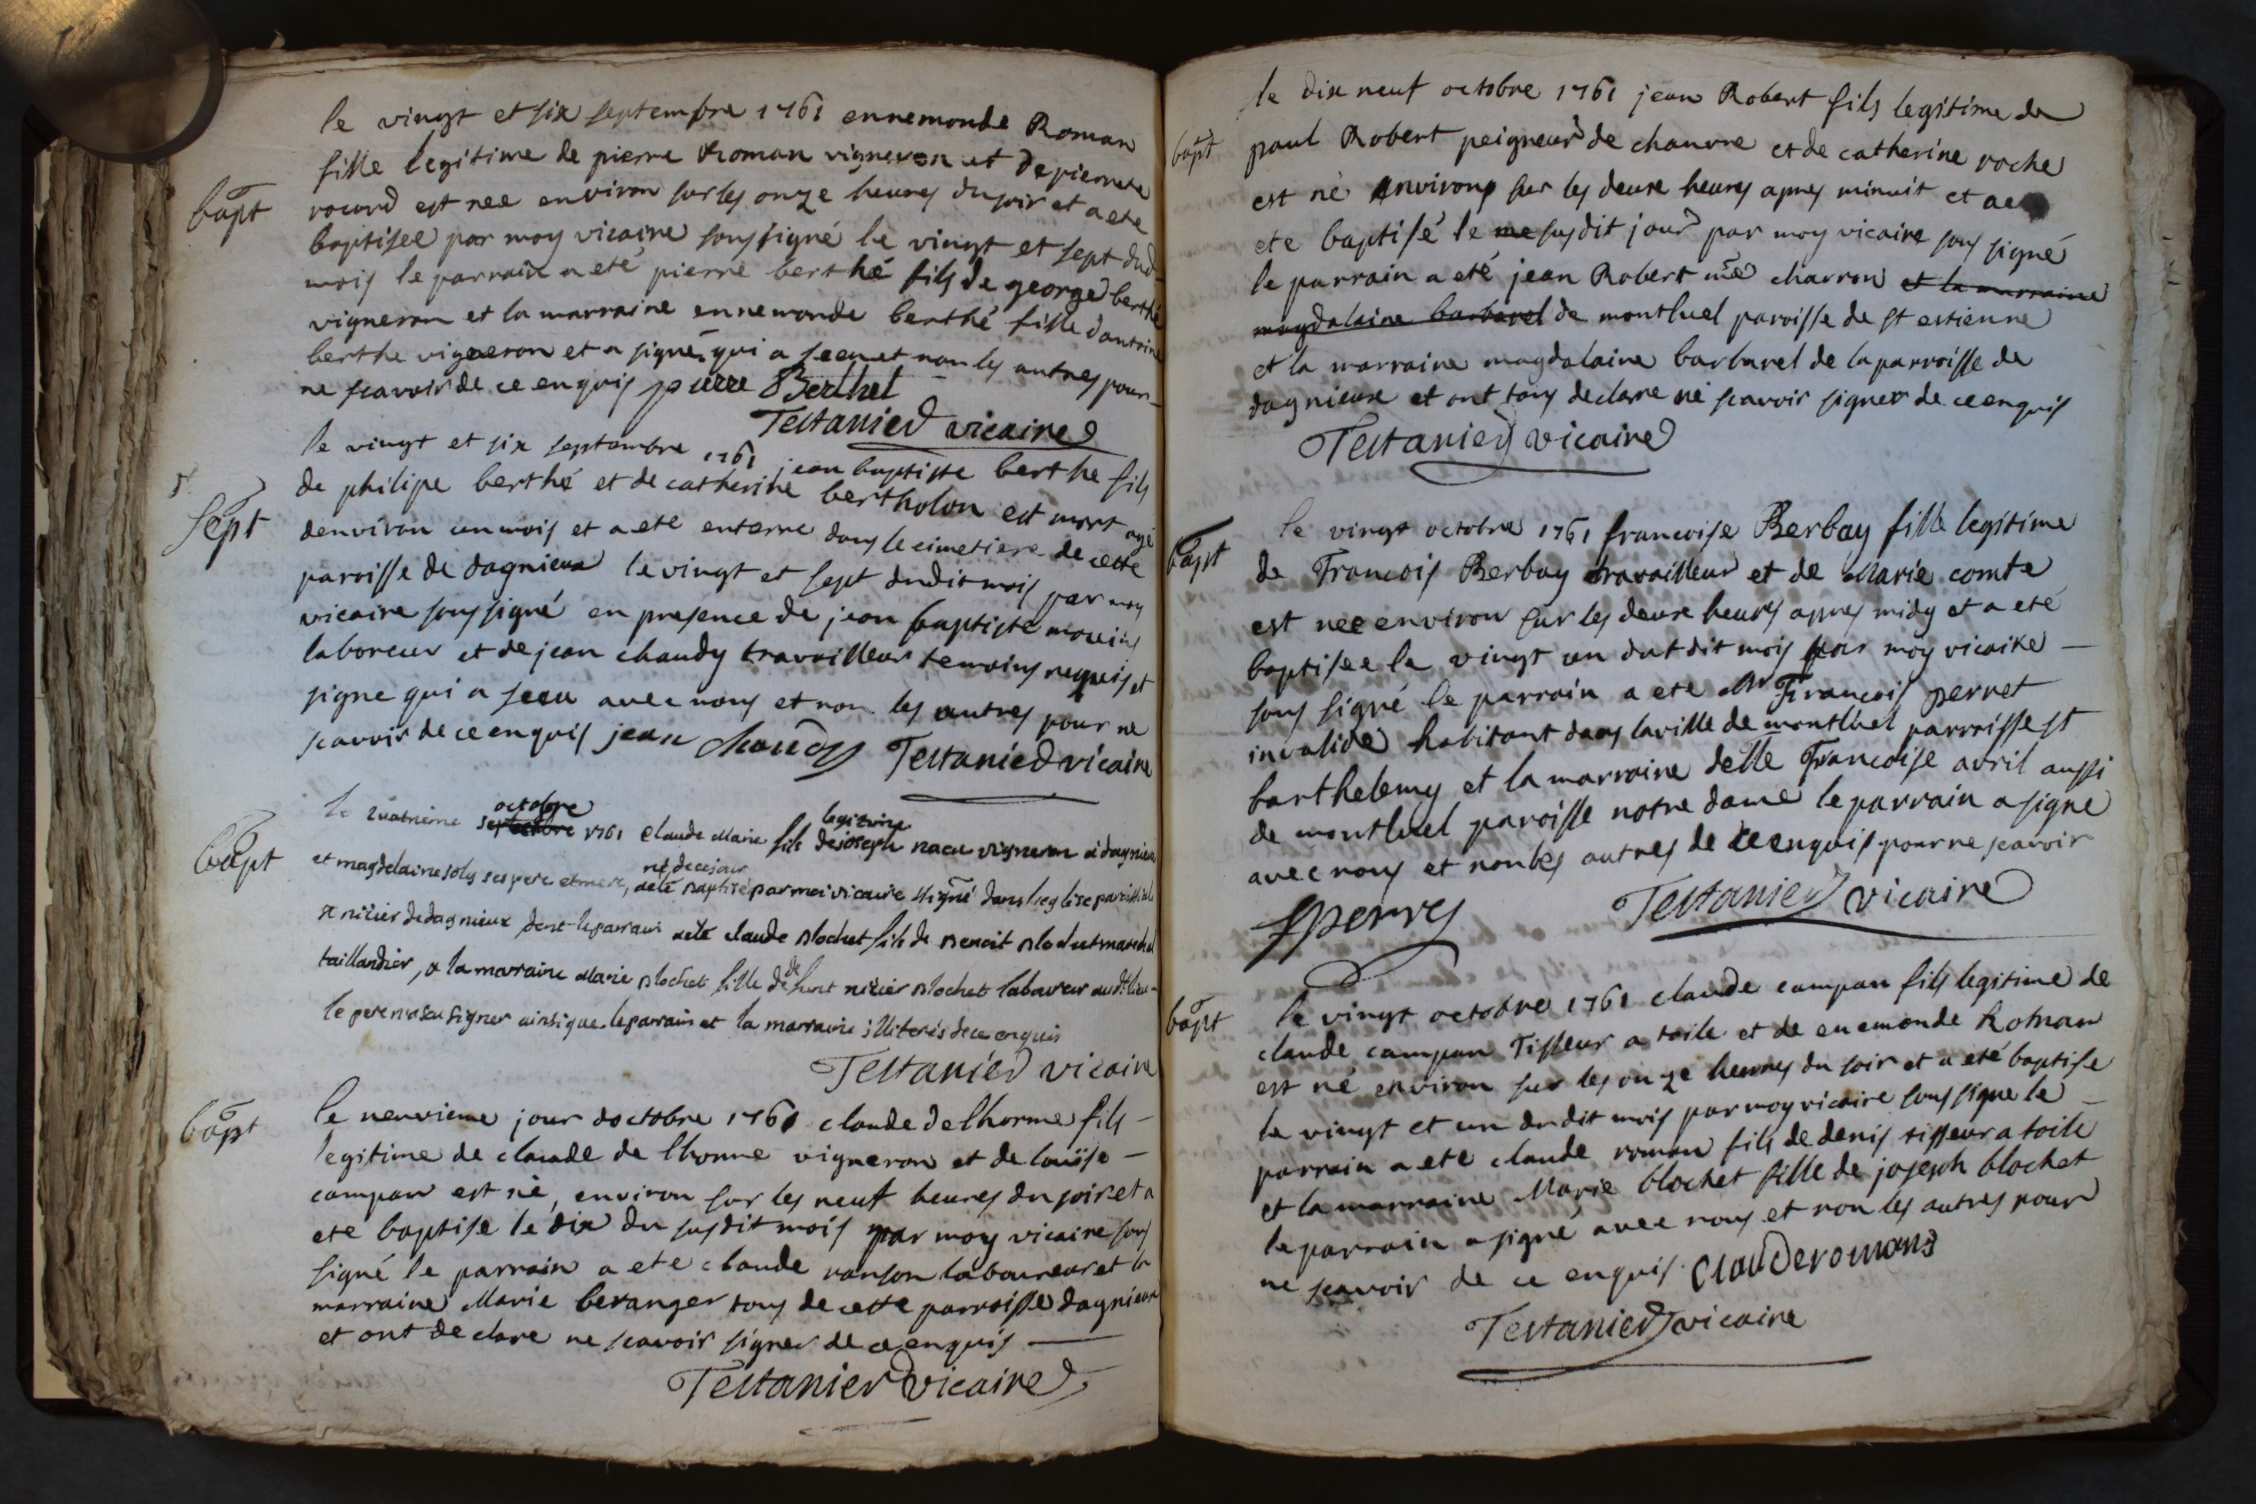 le vingt et six septembre 1761 ennemonde Roman
fille legitime de pierre Roman vigneron et de pierrete
bapt
rocurd est nee environ sur les onze heures du soir et a ete
baptisee par moy vicaire soussigné le vingt et sept dud
mois le parrain a eté pierre berthé fils de george berthé
vigneron et la marraine ennemonde berthé fille dantoine
berthe vigneron et a signé qui a sceu et non les autres pour
ne scavoir de ce enquis pierre Berthet
Testanier vicaire
le vingt et six septembre 1761 jean baptiste berthe fils
de philipe berthé et de catherine bertholon est mort agé
sept
denviron un mois et a ete enterre dans le cimetiere de cette
paroisse de dagnieux le vingt et sept dudit mois par moy
vicaire soussigné en presence de jean baptiste
laboreur et de jean chaudy travailleur temoins requis et
signe qui a sceu avec nous et non les autres pour ne
scavoir de ce enquis jean chaudy Testanier vicaire
octobre legitime
le quatrieme septembre 1761 Claude Marie fils de joseph nacu vigneron a dagnieu
bapt
né de ce jour
et magdelaine soly ses pere et mere, a eté baptisé par moi vicaire sigñé dans l'eglise paroissiale
st nizier de dagnieux dont le parrain a eté claude Blochet fils de Benoit Blochet marechal
taillandier, & la marraine Marie Blochet fille de defunt nizier Blochet laboureur au dt lieu
le pere n'a sçu signer ainsi que le parrain et la marraine illiterés de ce enquis
Testanier vicaire
bapt
le neuvieme jour doctobre 1761 claude de lhorme fils
legitime de claude de lhorme vigneron et de louise
campan est né, environ sur les neuf heures du soir et a
ete baptise le dix du susdit mois par moy vicaire sous
signé le parrain a ete claude ranson laboureur et la
marraine Marie beranger tous de cette parroisse dagnieux
et ont declare ne scavoir signer de ce enquis
Testanier vicaire
le dix neuf octobre 1761 jean Robert fils legitime de
bapt
paul Robert peigneur de chanvre et de catherine roche
est né environs sur les deux heures apres minuit et a
ete baptisé le me susdit jour par moy vicaire sous signé
le parrain a eté jean Robert me charron et la marraine
magdalaine barbarel de montluel paroisse de st estienne
et la marraine magdalaine barbarel de la parroisse de
dagnieux et ont tous declare ne scavoir signer de ce enquis
Testanier vicaire
le vingt octobre 1761 francoise Berbay fille legitime
bapt
de Francois Berbay travailleur et de Marie comte
est nee environ sur les deux heures apres midy et a eté
baptisee le vingt un dut dit mois par moy vicaire
sous signé le parrain a ete Mr Francois perret
invalide habitant dans la ville de montluel parroisse st
barthelemy et la marraine delle Francoise avril aussi
de montluel paroisse notre dame le parrain a signe
avec nous et non les autres de ce enquis pour ne scavoir
Testanier vicaire
bapt
le vingt octobre 1761 claude campan fils legitime de
claude campan Tisseur a toile et de enemonde Roman
est né environ sur les onze heures du soir et a eté baptise
le vingt et un dudit mois par moy vicaire sous signe le
parrain a ete claude roman fils de denis tisseur a toile
et la marraine Marie blochet fille de joseph blochet
le parrain a signé avec nous et non les autres pour
ne scavoir de ce enquis. Claude romans
Testanier vicaire